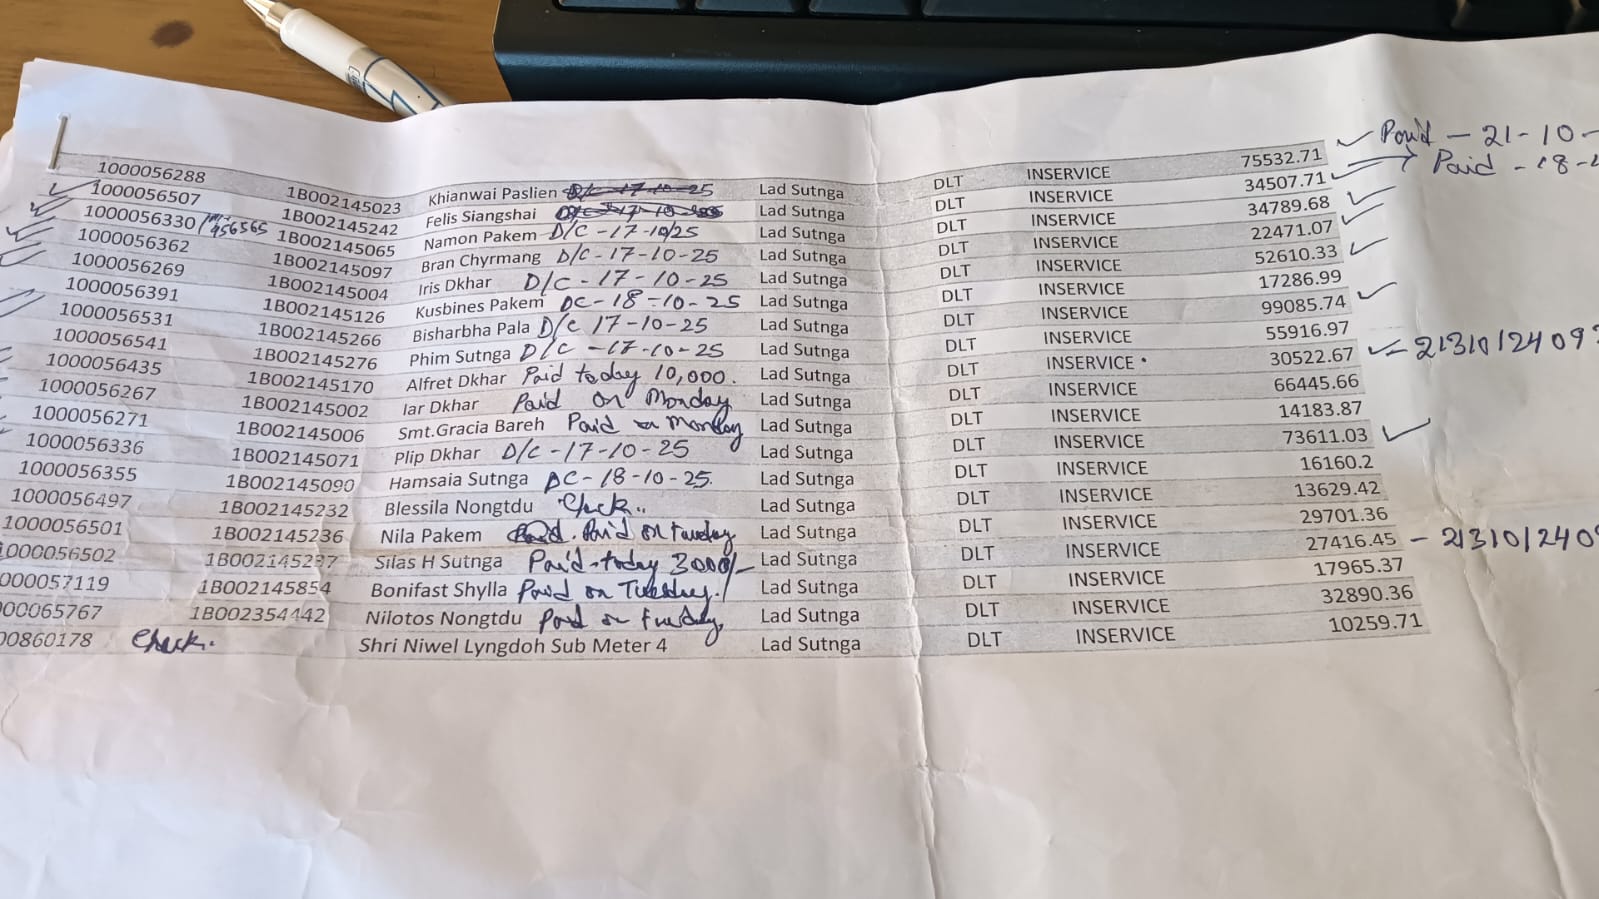 1000056288 1B002145023 Khianwai Paslien D/C-17-10-25 Lad Sutnga DLT INSERVICE 75532.71 Paid - 21-10-
1000056507 1B002145242 Felis Siangshai Lad Sutnga DLT INSERVICE 34507.71 Paid - 18-
1000056330/ 456565 1B002145065 Namon Pakem D/C-17-10/25 Lad Sutnga DLT INSERVICE 34789.68
1000056362 1B002145097 Bran Chyrmang D/C-17-10-25 Lad Sutnga DLT INSERVICE 22471.07
1000056269 1B002145004 Iris Dkhar D/C-17-10-25 Lad Sutnga DLT INSERVICE 52610.33
1000056391 1B002145126 Kusbines Pakem DC-18-10-25 Lad Sutnga DLT INSERVICE 17286.99
1000056531 1B002145266 Bisharbha Pala D/C 17-10-25 Lad Sutnga DLT INSERVICE 99085.74
1000056541 1B002145276 Phim Sutnga D/C-17-10-25 Lad Sutnga DLT INSERVICE 55916.97
1000056435 1B002145170 Alfret Dkhar Paid today 10,000. Lad Sutnga DLT INSERVICE 30522.67 - 2131012409
1000056267 1B002145002 Iar Dkhar Paid on Monday Lad Sutnga DLT INSERVICE 66445.66
1000056271 1B002145006 Smt.Gracia Bareh Paid on Monday Lad Sutnga DLT INSERVICE 14183.87
1000056336 1B002145071 Plip Dkhar D/C-17-10-25 Lad Sutnga DLT INSERVICE 73611.03
1000056355 1B002145090 Hamsaia Sutnga DC-18-10-25. Lad Sutnga DLT INSERVICE 16160.2
1000056497 1B002145232 Blessila Nongtdu Check.. Lad Sutnga DLT INSERVICE 13629.42
1000056501 1B002145236 Nila Pakem Paid on Tuesday Lad Sutnga DLT INSERVICE 29701.36
1000056502 1B002145237 Silas H Sutnga Paid-today 3000/- Lad Sutnga DLT INSERVICE 27416.45 - 213101240
000057119 1B002145854 Bonifast Shylla Paid on Tuesday. Lad Sutnga DLT INSERVICE 17965.37
00065767 1B002354442 Nilotos Nongtdu Paid on Lad Sutnga DLT INSERVICE 32890.36
00860178 Check. Shri Niwel Lyngdoh Sub Meter 4 Lad Sutnga DLT INSERVICE 10259.71